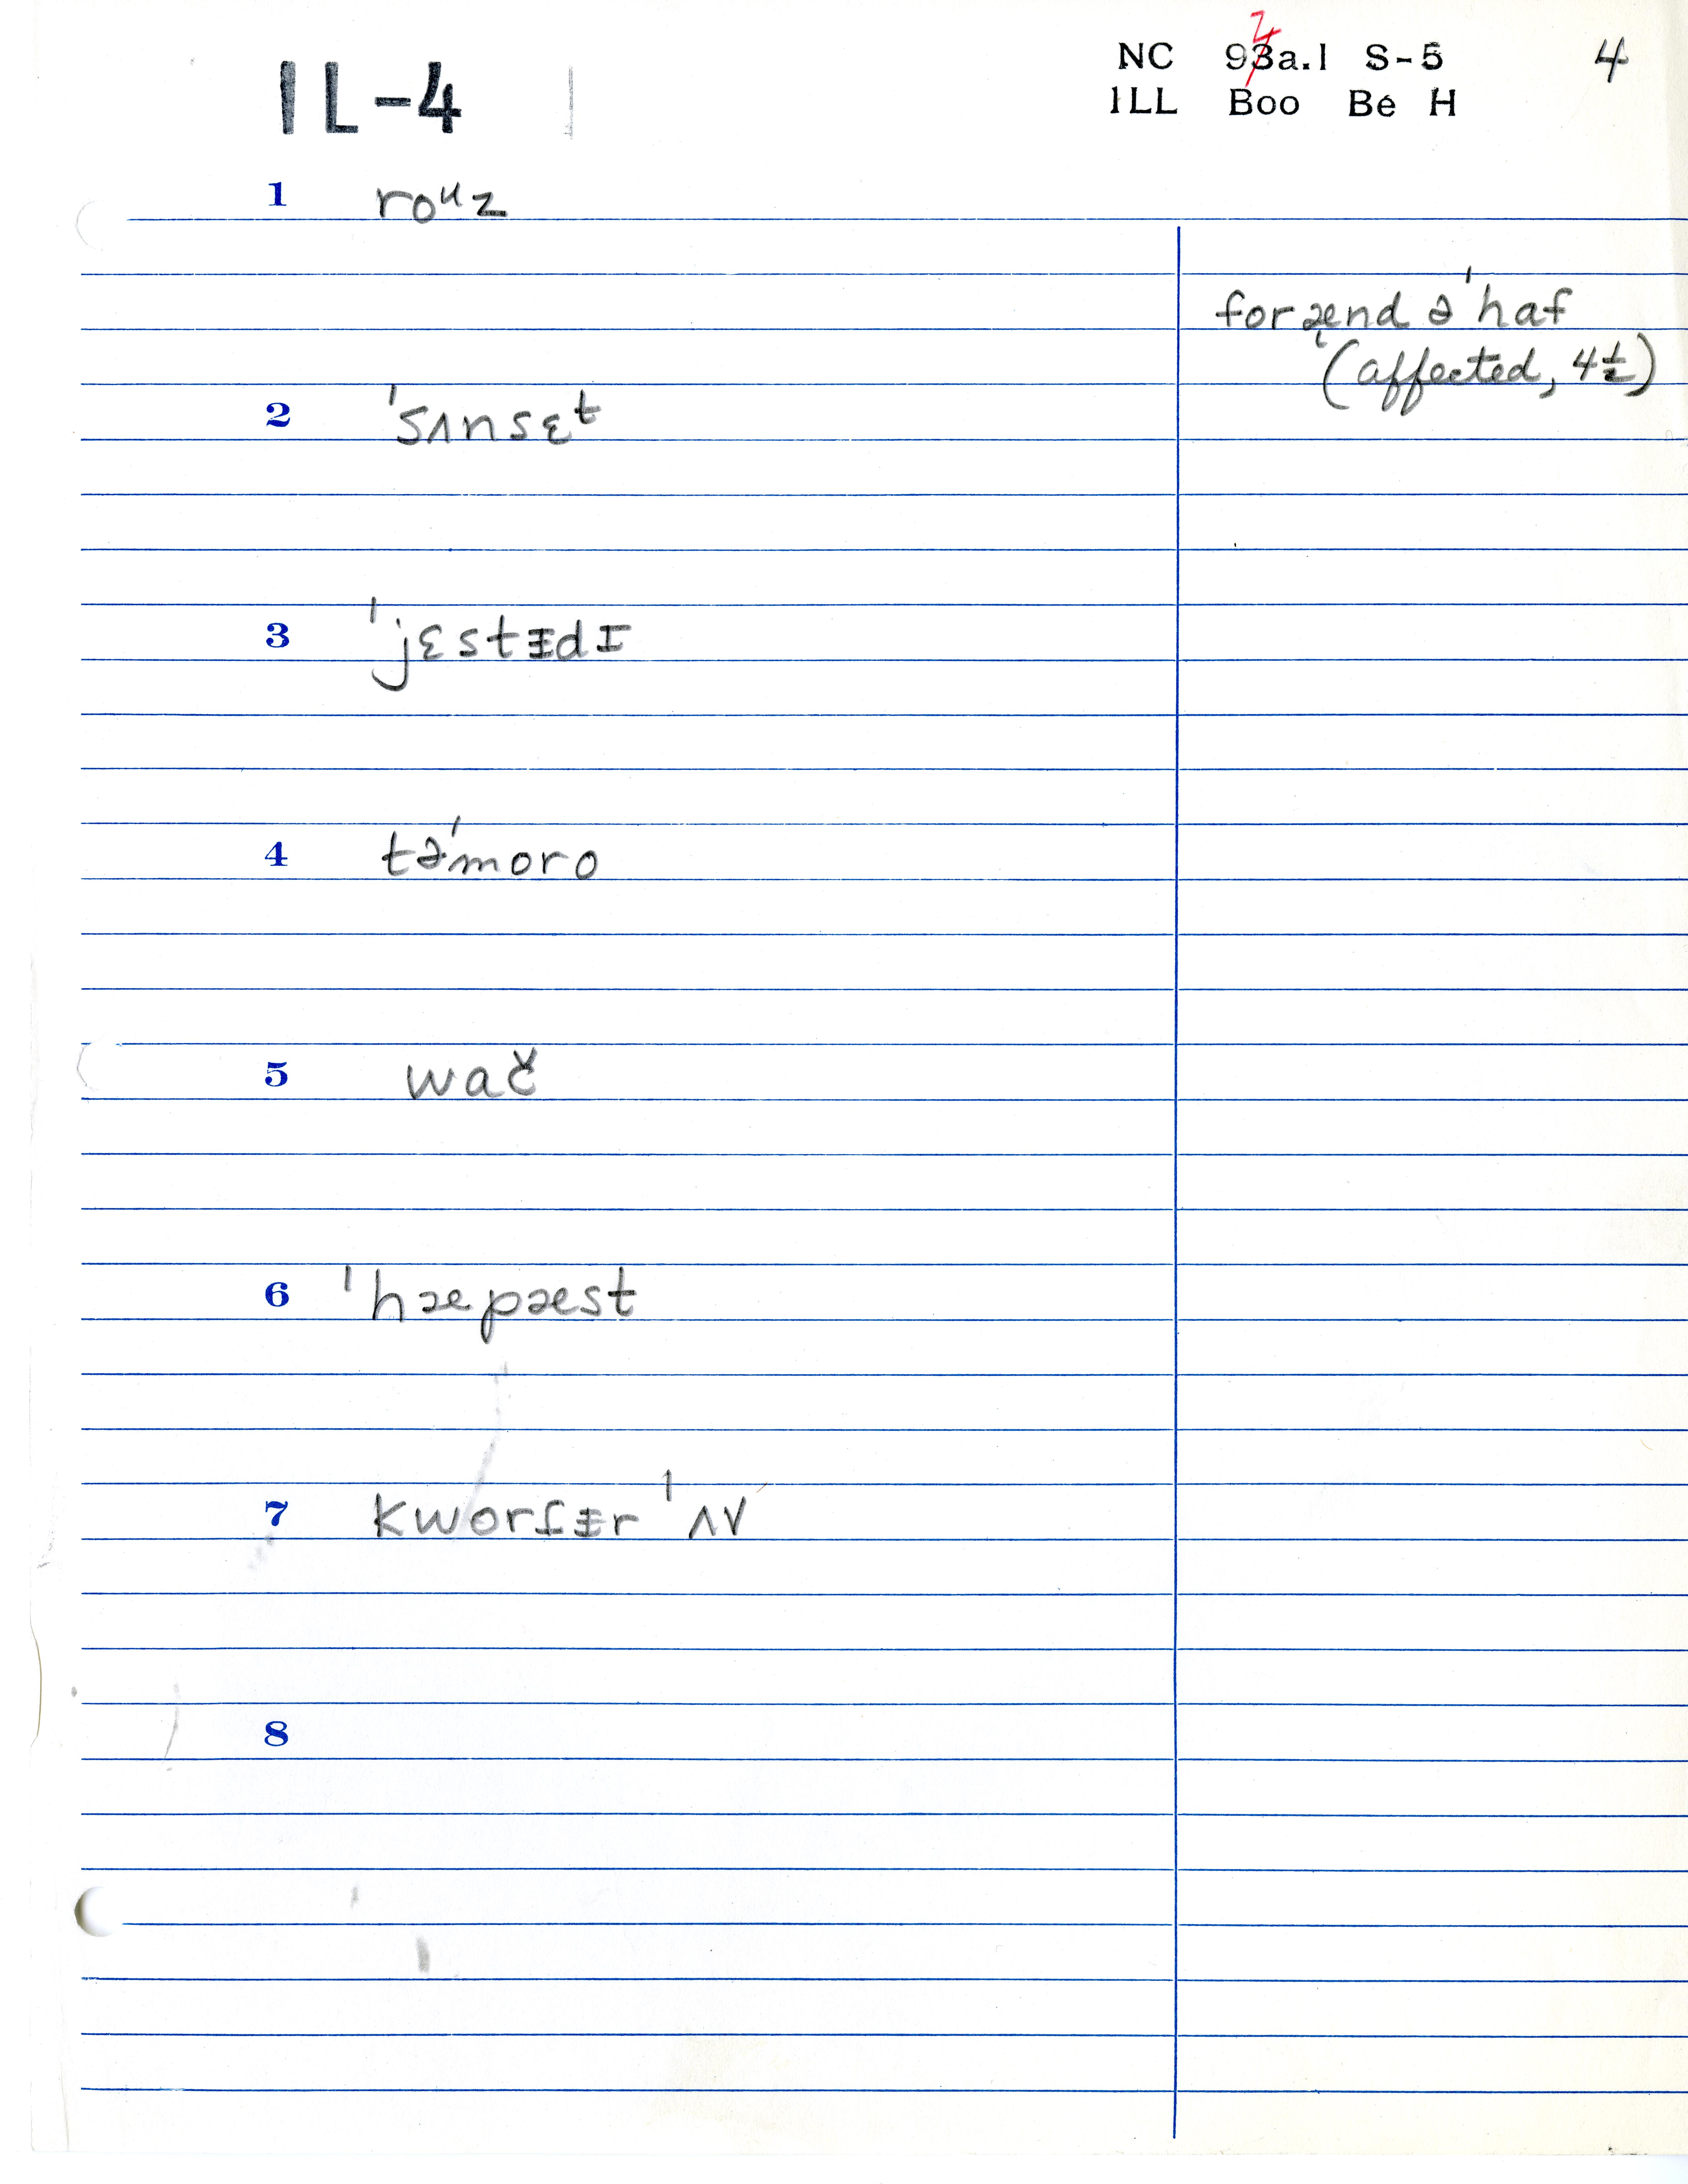 IL-4
NC 93a.1 S-5 4
2
ILL Boo Be H
1 roᵘz
for ænd ə ˈhaf
(affected, 4½)
2 ˈsʌnsɛᵗ
3 ˈjɛstᵻdɪ
4 təˈmoro
5 wač
6 ˈhæpæst
7 kworᵻr ˈʌv
8